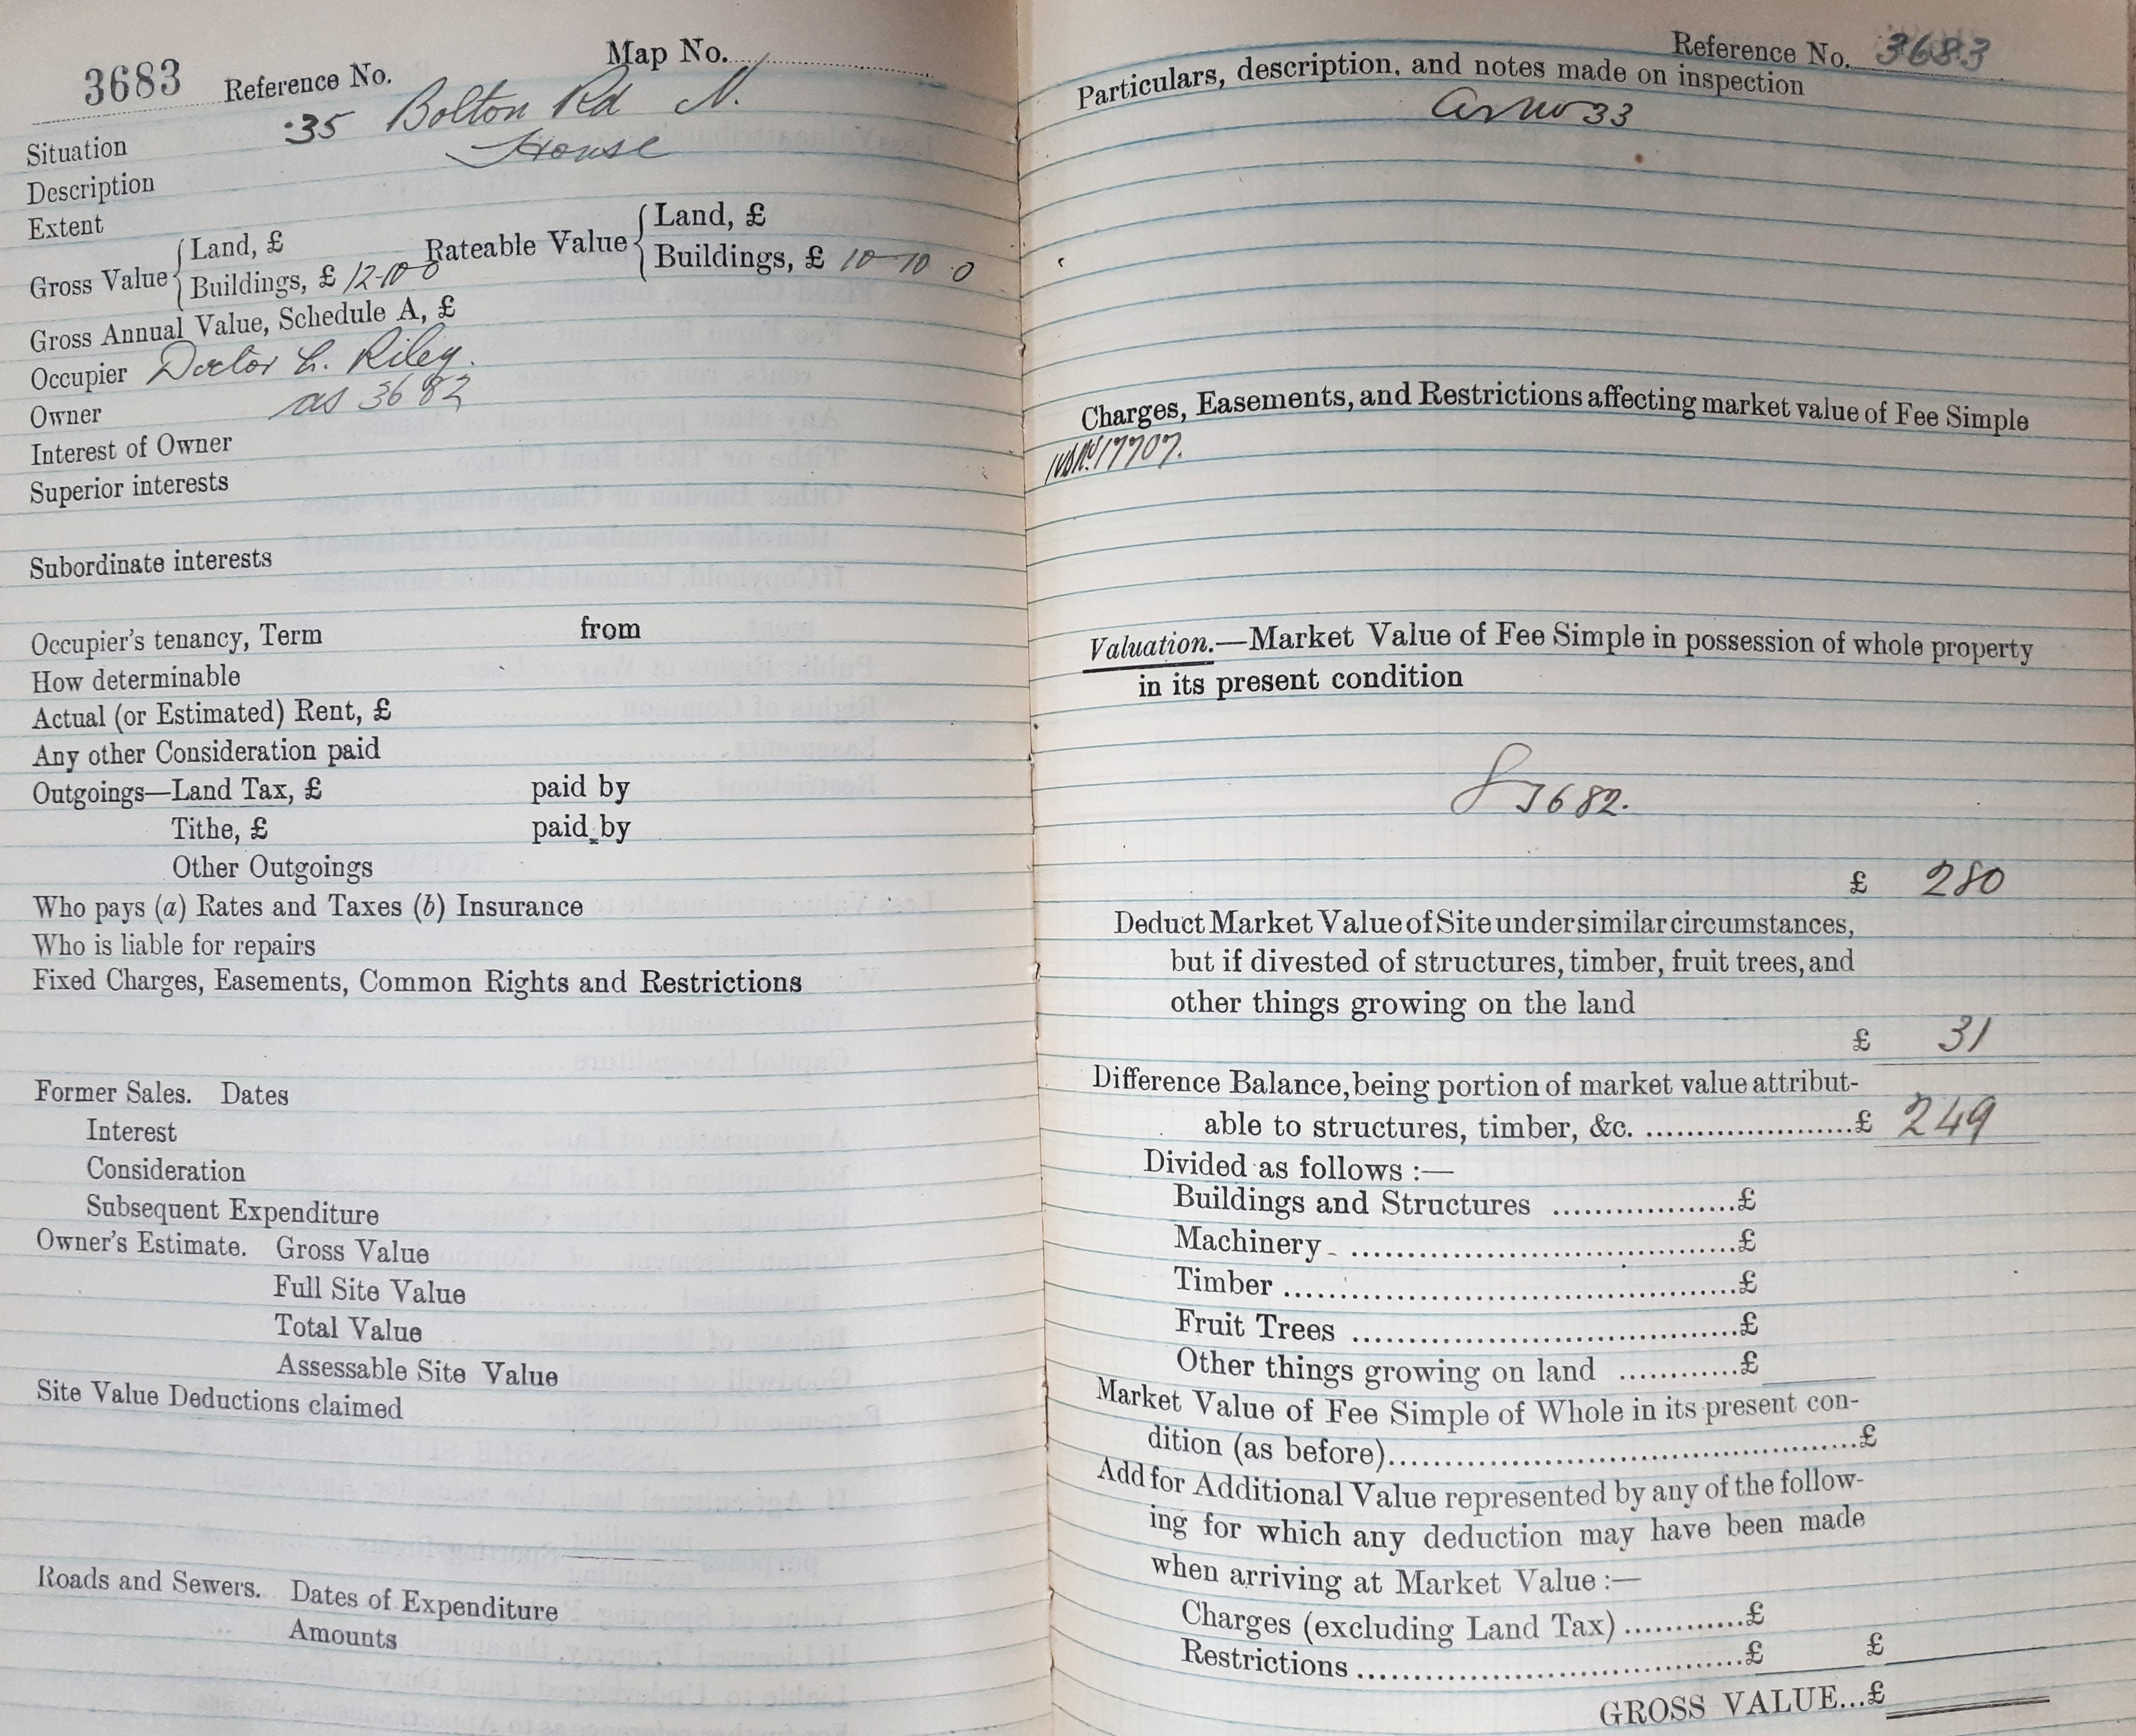 3683 Reference No. Map No.
Situation 35 Bolton Rd N.
Description House
Extent
Gross Value { Land, £ Rateable Value { Land, £
Buildings, £ 12-10-0 Buildings, £ 10-10-0
Gross Annual Value, Schedule A, £
Occupier Doctor H. Riley.
Owner as 3682
Interest of Owner
Superior interests
Subordinate interests
Occupier's tenancy, Term from
How determinable
Actual (or Estimated) Rent, £
Any other Consideration paid
Outgoings—Land Tax, £ paid by
Tithe, £ paid by
Other Outgoings
Who pays (a) Rates and Taxes (b) Insurance
Who is liable for repairs
Fixed Charges, Easements, Common Rights and Restrictions
Former Sales. Dates
Interest
Consideration
Subsequent Expenditure
Owner's Estimate. Gross Value
Full Site Value
Total Value
Assessable Site Value
Site Value Deductions claimed
Roads and Sewers. Dates of Expenditure
Amounts
Reference No. 3683
Particulars, description, and notes made on inspection
as no 33
Charges, Easements, and Restrictions affecting market value of Fee Simple
17707.
Valuation.—Market Value of Fee Simple in possession of whole property
in its present condition
3682.
£ 280
Deduct Market Value of Site under similar circumstances,
but if divested of structures, timber, fruit trees, and
other things growing on the land
£ 31
Difference Balance, being portion of market value attribut-
able to structures, timber, &c. ....................£ 249
Divided as follows :—
Buildings and Structures ..................£
Machinery ......................................£
Timber .............................................£
Fruit Trees ......................................£
Other things growing on land ............£
Market Value of Fee Simple of Whole in its present con-
dition (as before)..............................................£
Add for Additional Value represented by any of the follow-
ing for which any deduction may have been made
when arriving at Market Value :—
Charges (excluding Land Tax) ............£
Restrictions ......................................£ £
GROSS VALUE...£